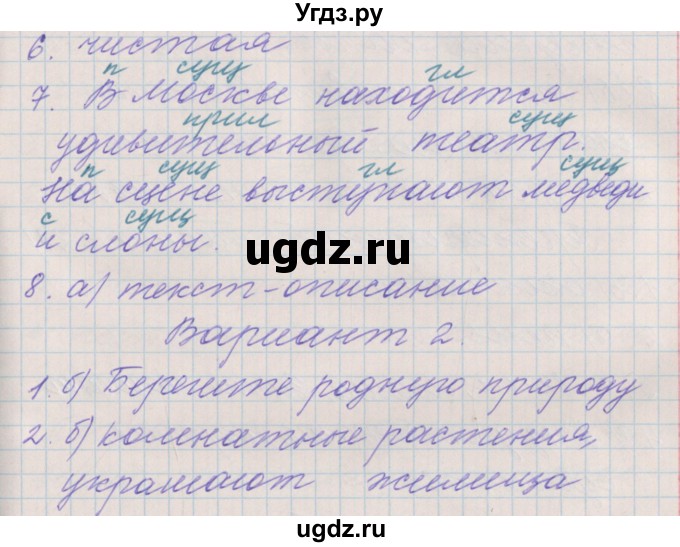 Угдз.ру
6. чистая
п сущ гл
7. В Москве находится
прил сущ
удивительный театр.
п сущ гл сущ
На сцене выступают медведи
с сущ
и слоны.
ugdz.ru
8. а) текст-описание
Вариант 2.
1. б) Берегите родную природу
2. б) комнатные растения,
украшают жилища
ugdz.ru